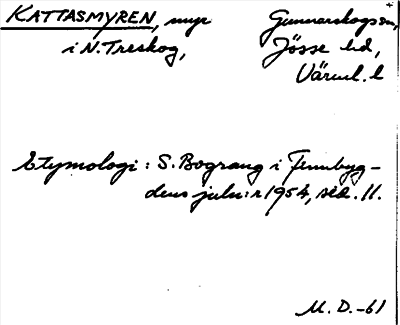 KATTASMYREN, myr
i N. Treskog,
Gunnarskogs sn,
Jösse hd,
Värml. l
Etymologi: S. Bograng i Finnbyg-
dens julnr 1954, sid. 11.
M. D. -61